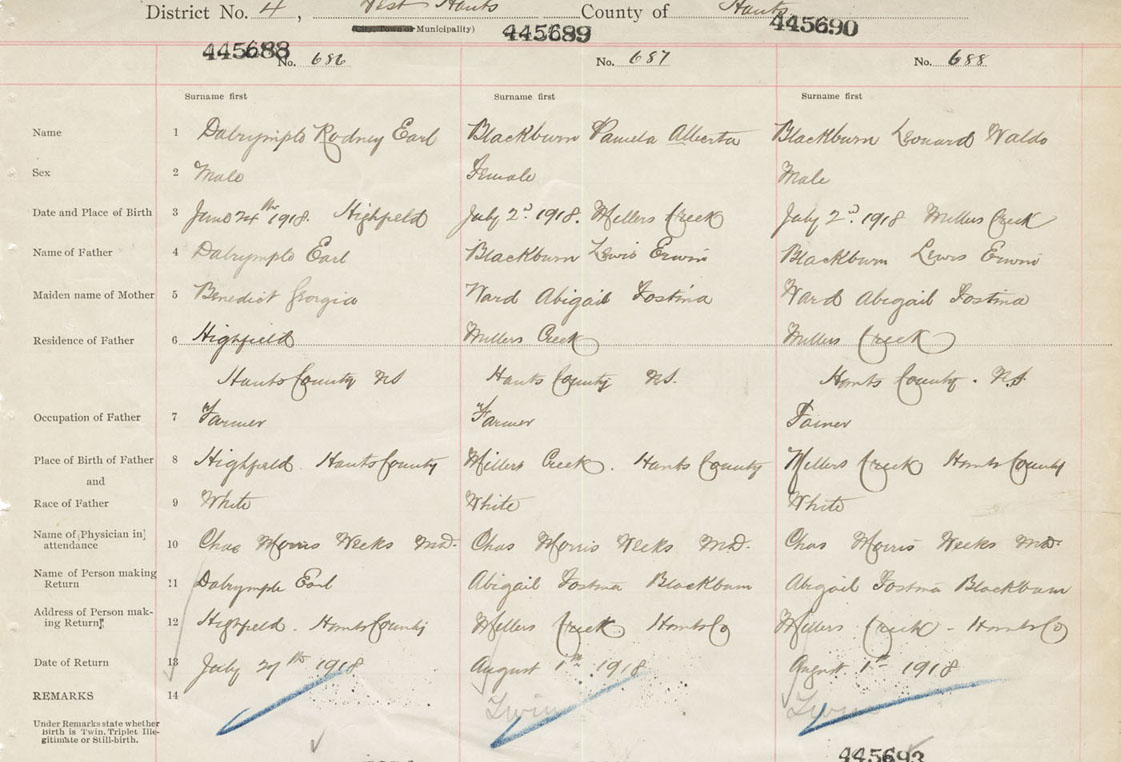 District No. 4, West Hants County of Hants
(City, Town or Municipality)
445688 445689 445690
No. 686 No. 687 No. 688
Surname first Surname first Surname first
Name 1 Dalrymple Rodney Earl Blackburn Pamela Alberta Blackburn Leonard Waldo
Sex 2 Male Female Male
Date and Place of Birth 3 June 24th 1918. Highfield July 2d. 1918. Millers Creek July 2d. 1918 Millers Creek
Name of Father 4 Dalrymple Earl Blackburn Lewis Erwin Blackburn Lewis Erwin
Maiden name of Mother 5 Benedict Georgia Ward Abigail Fostina Ward Abigail Fostina
Residence of Father 6 Highfield Millers Creek Millers Creek
Hants County NS Hants County NS. Hants County. N.S
Occupation of Father 7 Farmer Farmer Farmer
Place of Birth of Father 8 Highfield. Hants County Millers Creek. Hants County Millers Creek Hants County
and
Race of Father 9 White White White
Name of [Physician in]
attendance 10 Chas Morris Weeks MD. Chas Morris Weeks MD. Chas Morris Weeks MD.
Name of Person making
Return 11 Dalrymple Earl Abigail Fostina Blackburn Abigail Fostina Blackburn
Address of Person mak-
ing Return 12 Highfield. Hants County Millers Creek Hants Co Millers Creek - Hants Co
Date of Return 13 July 27th 1918 August 1st 1918 August 1st 1918
REMARKS 14 Twin Twin
Under Remarks state whether
Birth is Twin, Triplet Ille-
gitimate or Still-birth.
445693